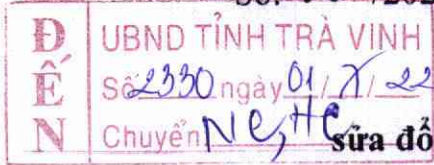 Số:
ĐẾN
UBND TỈNH TRÀ VINH
Số 2330 ngày 01/X/22
Chuyển NC, HC
sửa đổ